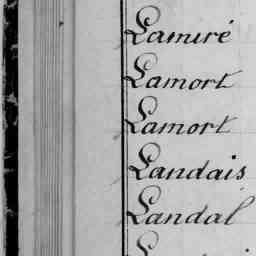 Lamiré
Lamort
Lamort
Landais
Landal